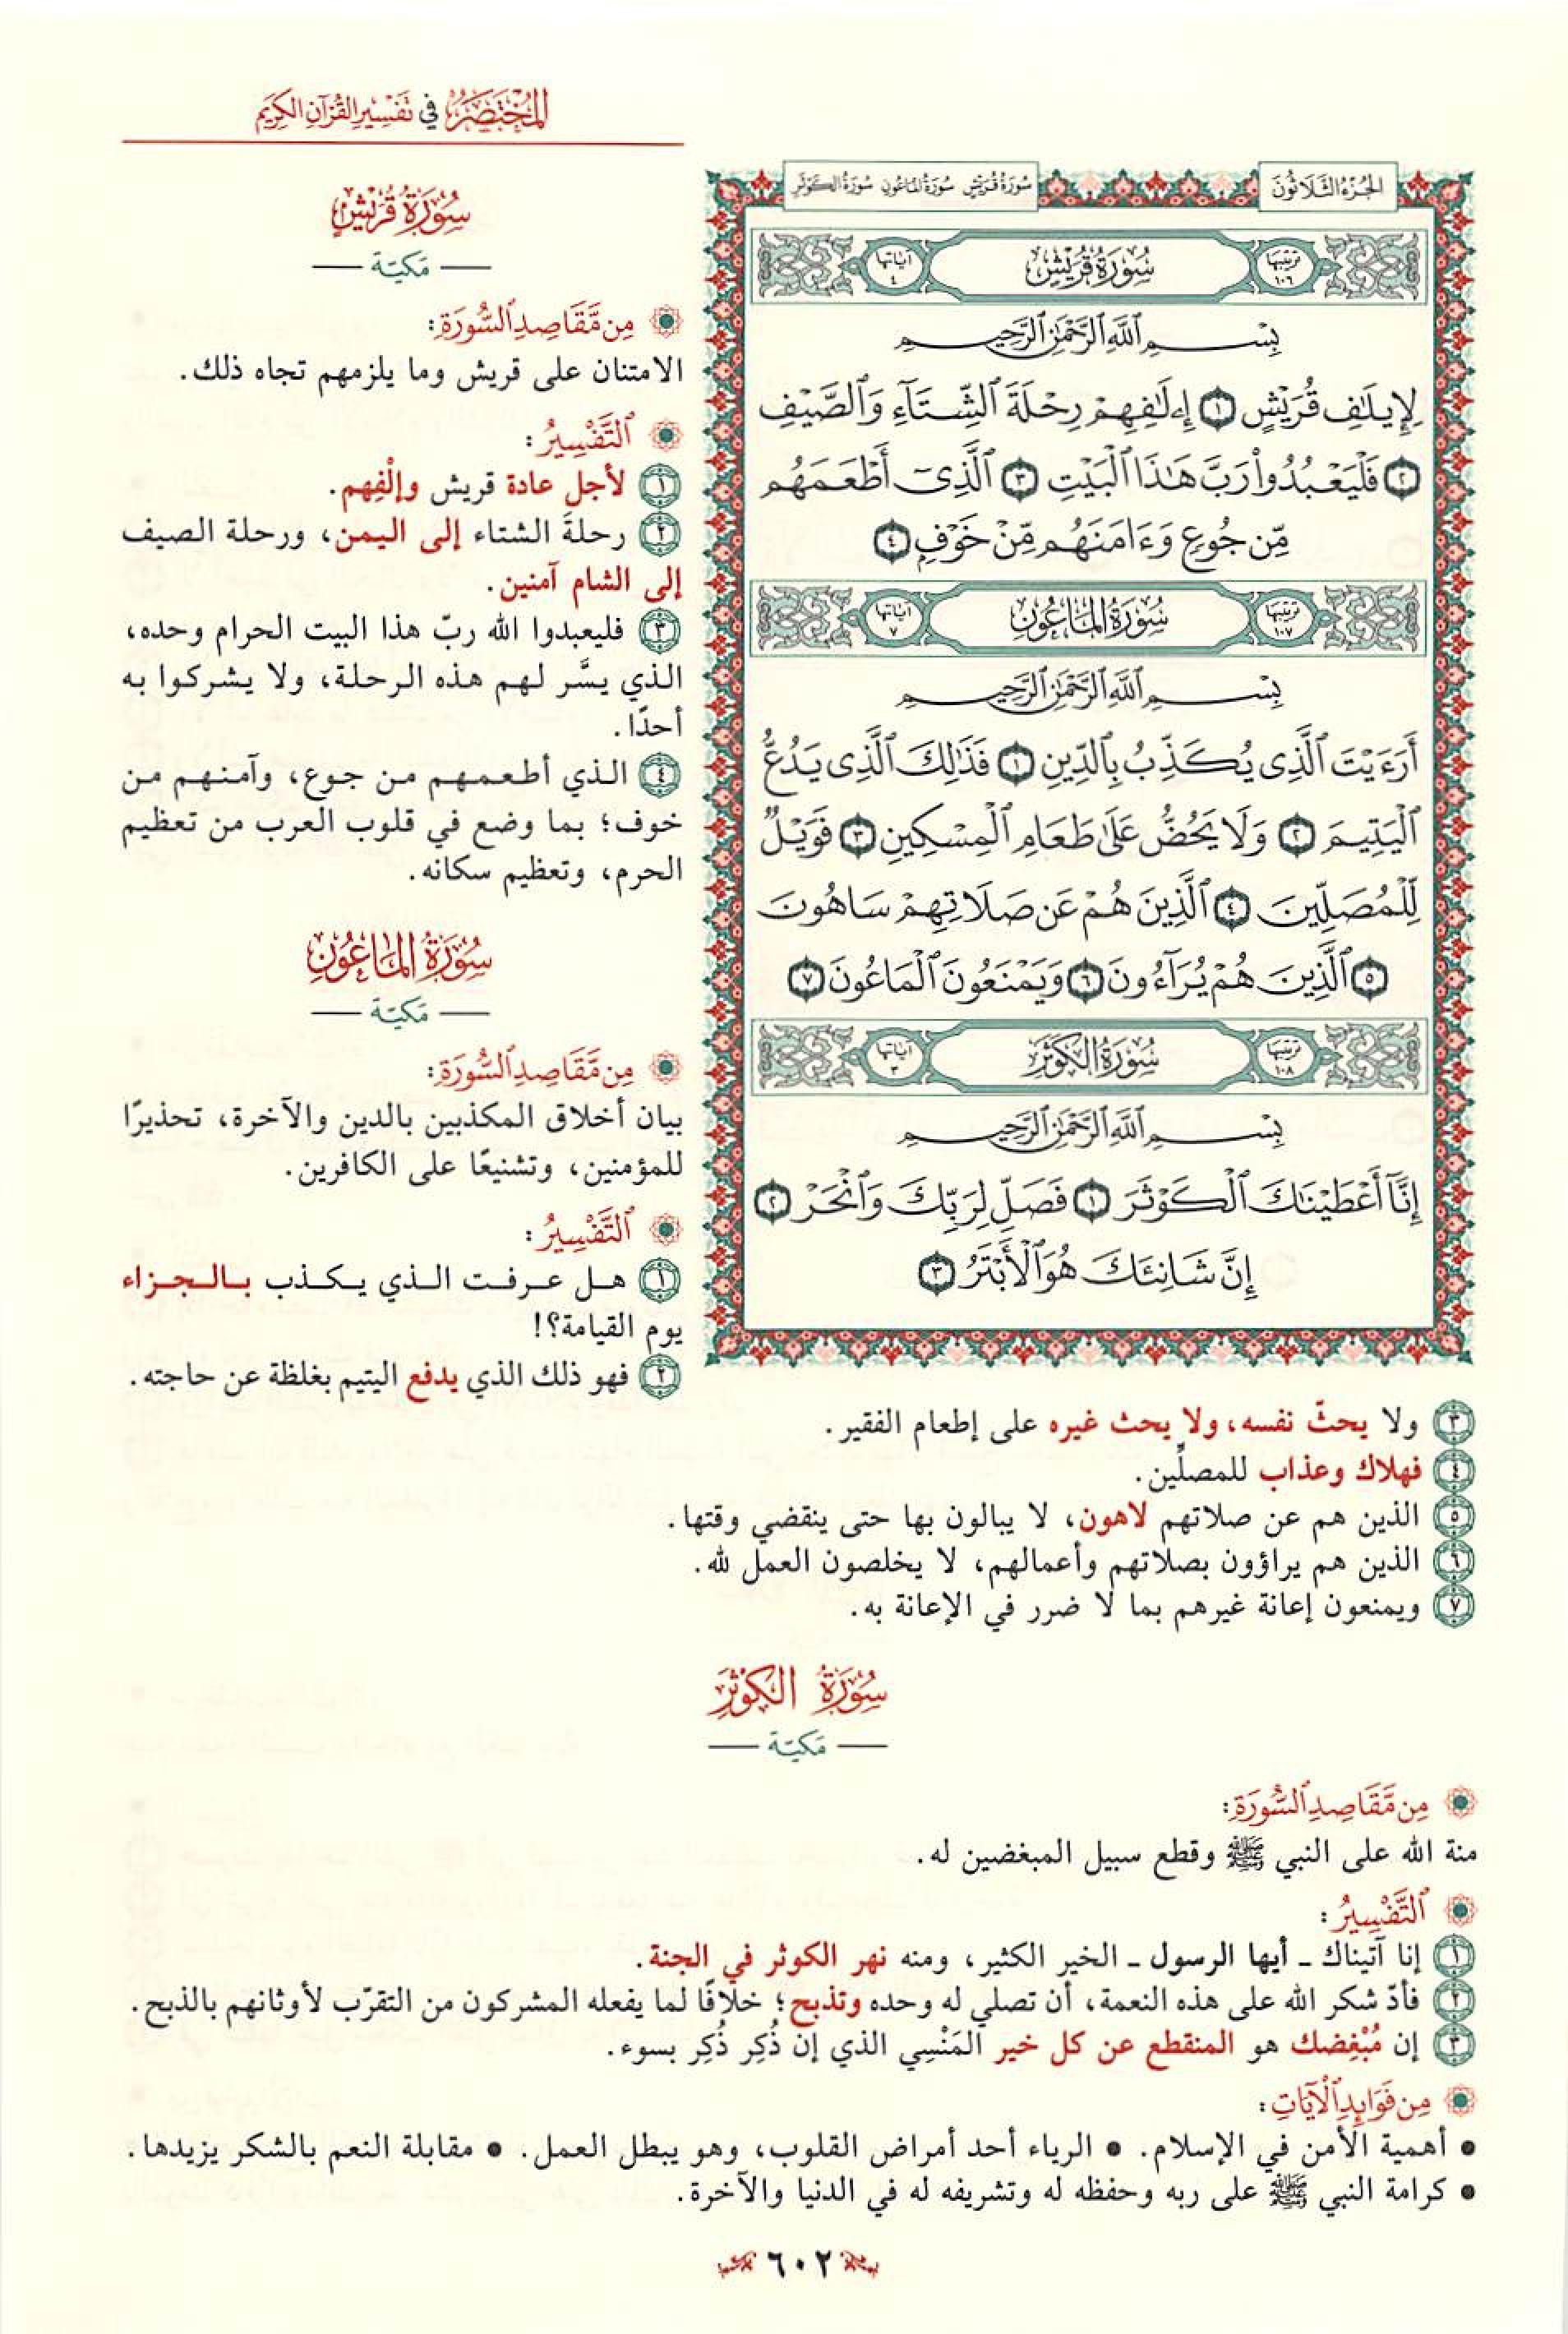 المختصر في تفسير القرآن الكريم
الجزء الثلاثون
سورة قريش سورة الماعون سورة الكوثر
ترتيبها ١٠٦
سُورَةُ قُرَيْشٍ
آياتها ٤
بِسْمِ ٱللَّهِ ٱلرَّحْمَٰنِ ٱلرَّحِيمِ
لِإِيلَٰفِ قُرَيْشٍ ١ إِۦلَٰفِهِمْ رِحْلَةَ ٱلشِّتَآءِ وَٱلصَّيْفِ
٢ فَلْيَعْبُدُوا۟ رَبَّ هَٰذَا ٱلْبَيْتِ ٣ ٱلَّذِىٓ أَطْعَمَهُم
مِّن جُوعٍ وَءَامَنَهُم مِّنْ خَوْفٍ ٤
ترتيبها ١٠٧
سُورَةُ المَاعُونِ
آياتها ٧
بِسْمِ ٱللَّهِ ٱلرَّحْمَٰنِ ٱلرَّحِيمِ
أَرَءَيْتَ ٱلَّذِى يُكَذِّبُ بِٱلدِّينِ ١ فَذَٰلِكَ ٱلَّذِى يَدُعُّ
ٱلْيَتِيمَ ٢ وَلَا يَحُضُّ عَلَىٰ طَعَامِ ٱلْمِسْكِينِ ٣ فَوَيْلٌ
لِّلْمُصَلِّينَ ٤ ٱلَّذِينَ هُمْ عَن صَلَاتِهِمْ سَاهُونَ
٥ ٱلَّذِينَ هُمْ يُرَآءُونَ ٦ وَيَمْنَعُونَ ٱلْمَاعُونَ ٧
ترتيبها ١٠٨
سُورَةُ الكَوْثَرِ
آياتها ٣
بِسْمِ ٱللَّهِ ٱلرَّحْمَٰنِ ٱلرَّحِيمِ
إِنَّآ أَعْطَيْنَٰكَ ٱلْكَوْثَرَ ١ فَصَلِّ لِرَبِّكَ وَٱنْحَرْ ٢
إِنَّ شَانِئَكَ هُوَ ٱلْأَبْتَرُ ٣
سُورَةُ قُرَيْشٍ
مَكيّة
مِن مَّقَاصِدِ ٱلسُّورَةِ:
الامتنان على قريش وما يلزمهم تجاه ذلك.
ٱلتَّفْسِيرُ:
١ لأجل عادة قريش وإلْفِهم.
٢ رحلةَ الشتاء إلى اليمن، ورحلة الصيف
إلى الشام آمنين.
٣ فليعبدوا الله ربّ هذا البيت الحرام وحده،
الذي يسَّر لهم هذه الرحلة، ولا يشركوا به
أحدًا.
٤ الذي أطعمهم من جوع، وآمنهم من
خوف؛ بما وضع في قلوب العرب من تعظيم
الحرم، وتعظيم سكانه.
سُورَةُ المَاعُونِ
مَكيّة
مِن مَّقَاصِدِ ٱلسُّورَةِ:
بيان أخلاق المكذبين بالدين والآخرة، تحذيرًا
للمؤمنين، وتشنيعًا على الكافرين.
ٱلتَّفْسِيرُ:
١ هل عرفت الذي يكذب بالجزاء
يوم القيامة؟!
٢ فهو ذلك الذي يدفع اليتيم بغلظة عن حاجته.
٣ ولا يحثّ نفسه، ولا يحث غيره على إطعام الفقير.
٤ فهلاك وعذاب للمصلِّين.
٥ الذين هم عن صلاتهم لاهون، لا يبالون بها حتى ينقضي وقتها.
٦ الذين هم يراؤون بصلاتهم وأعمالهم، لا يخلصون العمل لله.
٧ ويمنعون إعانة غيرهم بما لا ضرر في الإعانة به.
سُورَةُ الكَوْثَرِ
مَكيّة
مِن مَّقَاصِدِ ٱلسُّورَةِ:
منة الله على النبي ﷺ وقطع سبيل المبغضين له.
ٱلتَّفْسِيرُ:
١ إنا آتيناك ـ أيها الرسول ـ الخير الكثير، ومنه نهر الكوثر في الجنة.
٢ فأدّ شكر الله على هذه النعمة، أن تصلي له وحده وتذبح؛ خلافًا لما يفعله المشركون من التقرّب لأوثانهم بالذبح.
٣ إن مُبْغِضك هو المنقطع عن كل خير المَنْسِي الذي إن ذُكِر ذُكِر بسوء.
مِن فَوَائِدِ ٱلْآيَاتِ:
• أهمية الأمن في الإسلام. • الرياء أحد أمراض القلوب، وهو يبطل العمل. • مقابلة النعم بالشكر يزيدها.
• كرامة النبي ﷺ على ربه وحفظه له وتشريفه له في الدنيا والآخرة.
٦٠٢